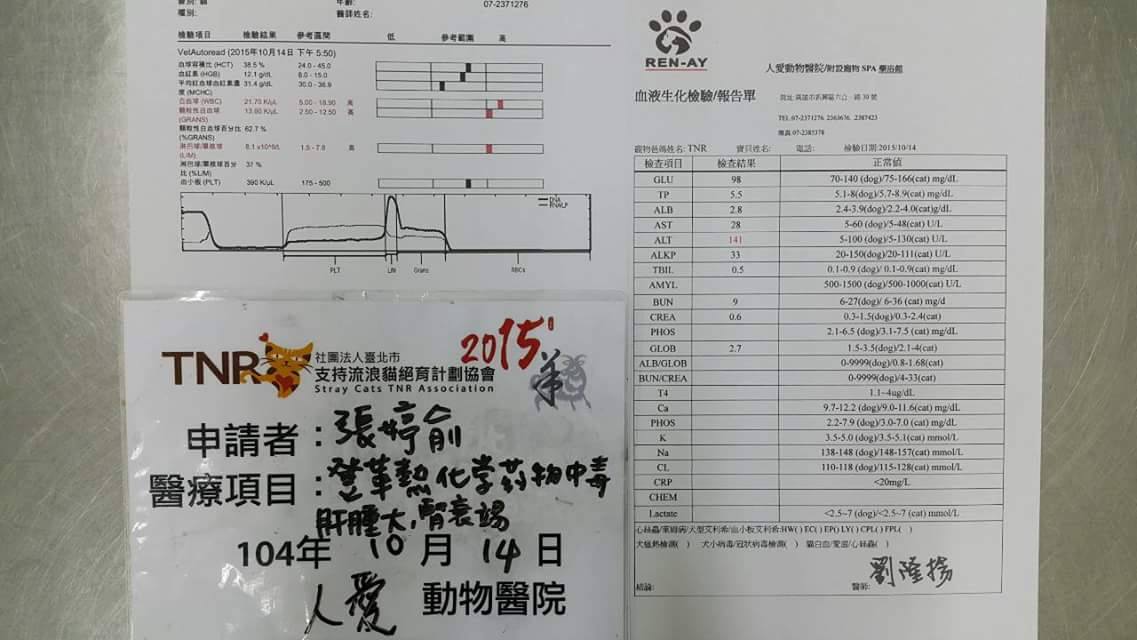 07-2371276
醫師姓名:
年齡:
檢驗項目 檢驗結果 參考區間 低 參考範圍 高
VetAutoread (2015年10月14日 下午 5:50)
血球容積比 (HCT) 38.5 % 24.0 - 45.0
血紅素 (HGB) 12.1 g/dL 8.0 - 15.0
平均紅血球血紅素濃 31.4 g/dL 30.0 - 36.9
度 (MCHC)
白血球 (WBC) 21.70 K/µL 5.00 - 18.90 高
顆粒性白血球 13.60 K/µL 2.50 - 12.50 高
(GRANS)
顆粒性白血球百分比 62.7 %
(%GRANS)
淋巴球/單核球 8.1 x10^9/L 1.5 - 7.8 高
(L/M)
淋巴球/單核球百分 37 %
比 (%L/M)
血小板 (PLT) 390 K/µL 175 - 500
DNA
RNA/LP
PLT L/M Grans RBCs
TNR
社團法人臺北市
支持流浪貓絕育計劃協會
Stray Cats TNR Association
2015
羊
申請者:張婷俞
醫療項目:登革熱化学葯物中毒
肝腫大,腎衰竭
104年 10 月 14 日
人愛 動物醫院
REN-AY
人愛動物醫院/附設寵物 SPA 藥浴館
血液生化檢驗/報告單
地址:高雄市新興區六合一路 39 號
TEL:07-2371276 2363676. 2387423
傳真:07-2385378
寵物爸媽姓名: TNR 寶貝姓名: 電話: 檢驗日期:2015/10/14
檢查項目 檢查結果 正常值
GLU 98 70-140 (dog)/75-166(cat) mg/dL
TP 5.5 5.1-8(dog)/5.7-8.9(cat) mg/dL
ALB 2.8 2.4-3.9(dog)/2.2-4.0(cat)g/dL
AST 28 5-60 (dog)/5-48(cat) U/L
ALT 141 5-100 (dog)/5-130(cat) U/L
ALKP 33 20-150(dog)/20-111(cat) U/L
TBIL 0.5 0.1-0.9 (dog)/ 0.1-0.9(cat) mg/dL
AMYL 500-1500 (dog)/500-1000(cat) U/L
BUN 9 6-27(dog)/ 6-36 (cat) mg/d
CREA 0.6 0.3-1.5(dog)/0.3-2.4(cat)
PHOS 2.1-6.5 (dog)/3.1-7.5 (cat) mg/dL
GLOB 2.7 1.5-3.5(dog)/2.1-4(cat)
ALB/GLOB 0-9999(dog)/0.8-1.68(cat)
BUN/CREA 0-9999(dog)/4-33(cat)
T4 1.1~4ug/dL
Ca 9.7-12.2 (dog)/9.0-11.6(cat) mg/dL
PHOS 2.2-7.9 (dog)/3.0-7.0 (cat) mg/dL
K 3.5-5.0 (dog)/3.5-5.1(cat) mmol/L
Na 138-148 (dog)/148-157(cat) mmol/L
CL 110-118 (dog)/115-128(cat) mmol/L
CRP <20mg/L
CHEM
Lactate <2.5~7 (dog)/<2.5~7 (cat) mmol/L
心絲蟲/萊姆病/犬型艾利希/血小板艾利希:HW( ) EC( ) EP() LY( ) CPL( ) FPL( )
犬瘟熱檢測( ) 犬小病毒/冠狀病毒檢測( ) 貓白血/愛滋/心絲蟲( )
結論: 醫師: 劉隆揚